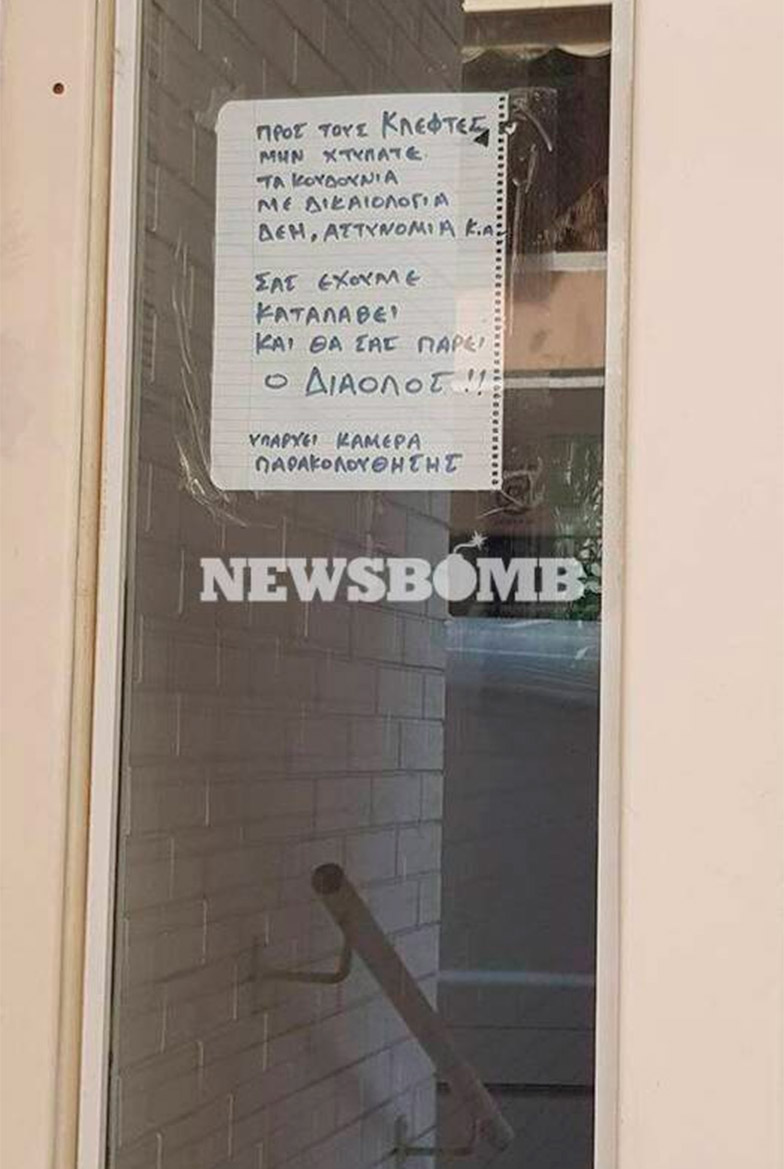 ΠΡΟΣ ΤΟΥΣ ΚΛΕΦΤΕΣ
ΜΗΝ ΧΤΥΠΑΤΕ
ΤΑ ΚΟΥΔΟΥΝΙΑ
ΜΕ ΔΙΚΑΙΟΛΟΓΙΑ
ΔΕΗ, ΑΣΤΥΝΟΜΙΑ Κ.Α.
ΣΑΣ ΕΧΟΥΜΕ
ΚΑΤΑΛΑΒΕΙ
ΚΑΙ ΘΑ ΣΑΣ ΠΑΡΕΙ
Ο ΔΙΑΟΛΟΣ!!
ΥΠΑΡΧΕΙ ΚΑΜΕΡΑ
ΠΑΡΑΚΟΛΟΥΘΗΣΗΣ
NEWSBOMB